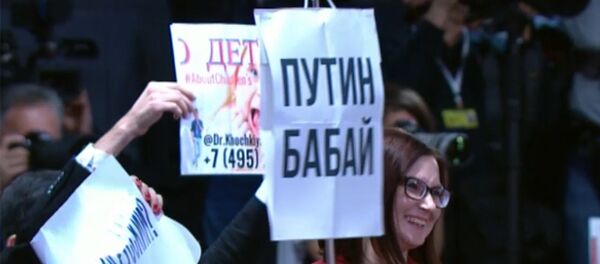 О ДЕТ
#AboutChildren's
@Dr.Khochkiy
+7 (495)
ПУТИН
БАБАЙ